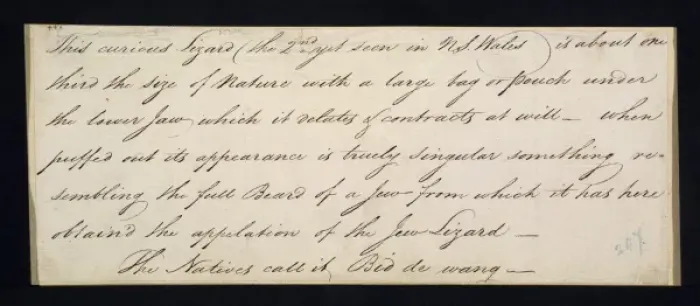 This curious Lizard (the 2nd yet seen in N.S. Wales) is about one
third the size of Nature with a large bag or Pouch under
the lower Jaw which it delates & contracts at will — when
puffed out its appearance is truely singular something re-
sembling the full Beard of a Jew from which it has here
obtain'd the appelation of the Jew Lizard —
The Natives call it Bid de wang —